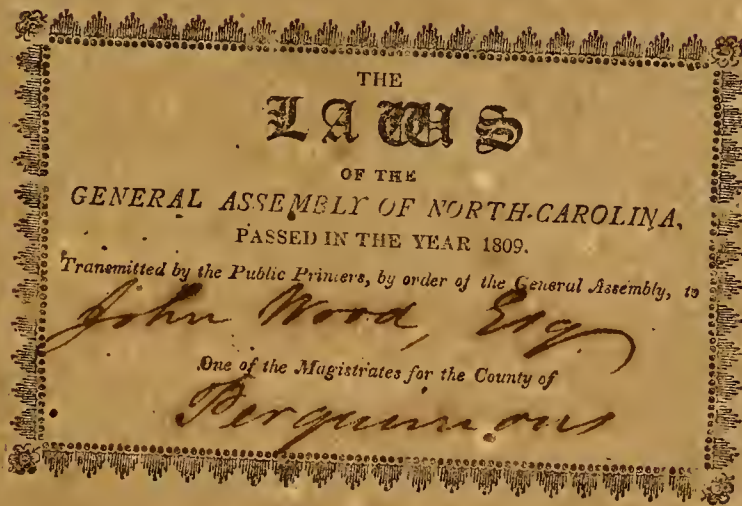 THE
LAWS
OF THE
GENERAL ASSEMBLY OF NORTH-CAROLINA,
PASSED IN THE YEAR 1809.
Transmitted by the Public Printers, by order of the General Assembly, to
John Wood, Esq.
One of the Magistrates for the County of
Perquimons